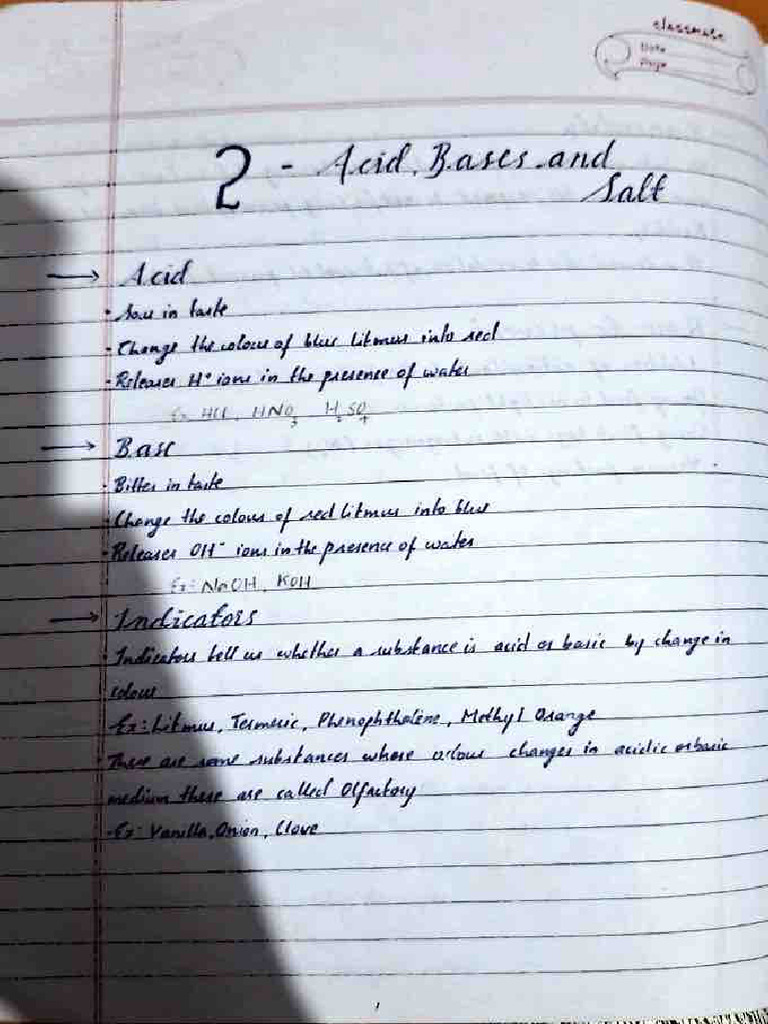 classmate
Date
Page
2 - Acid, Bases and
Salt
→ Acid
• Sour in taste
• Change the colour of blue litmus into red
• Releases H+ ions in the presence of water
Ex: HCl, HNO3 H2SO4
→ Base
• Bitter in taste
• Change the colour of red litmus into blue
• Releases OH- ions in the presence of water
Ex: NaOH, KOH
→ Indicators
• Indicators tell us whether a substance is acid or basic by change in
colour
Ex: Litmus, Termeric, Phenophthalene, Methyl Orange
• There are some substances whose odour changes in acidic or basic
medium these are called Olfactory
• Ex: Vanilla, Onion, Clove